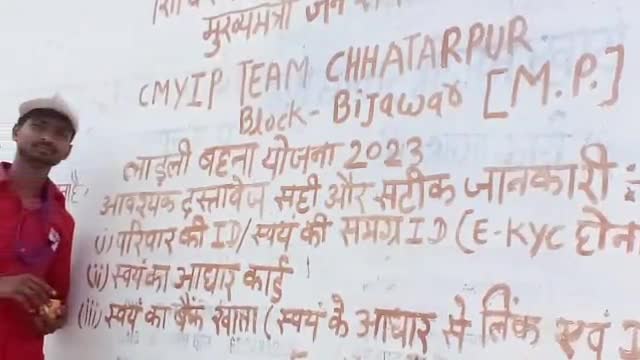 मुख्यमंत्री जन
CMYIP TEAM CHHATARPUR
Block - Bijawar [M.P.]
लाड़ली बहना योजना 2023
आवश्यक दस्तावेज सही और सटीक जानकारी :
(i) परिवार की ID/स्वयं की समग्र ID (E-KYC होना
(ii) स्वयं का आधार कार्ड
(iii) स्वयं का बैंक खाता (स्वयं के आधार से लिंक एवं